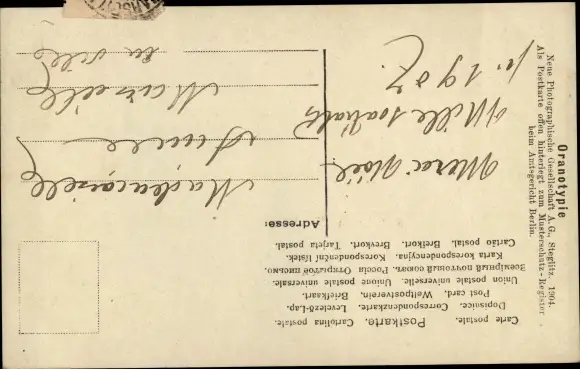 Oranotypie
Neue Photographische Gesellschaft A.G., Steglitz, 1904.
Als Postkarte offen hinterlegt zum Musterschutz-Register
beim Amtsgericht Berlin.
Carte postale. Postkarte. Cartolina postale.
Dopisnice. Correspondenzkarte. Levelező-Lap.
Post card. Weltpostverein. Briefkaart.
Union postale universelle. Unione postale universale.
Всемірный почтовый союзъ. Россія Открытое письмо.
Karta korespondencyjna. Korespondenční lístek.
Cartão postal. Brefkort. Brevkort. Tarjeta postal.
Adresse:
Merci
Mille souhaits
p. 1907.
Mademoiselle
en ville